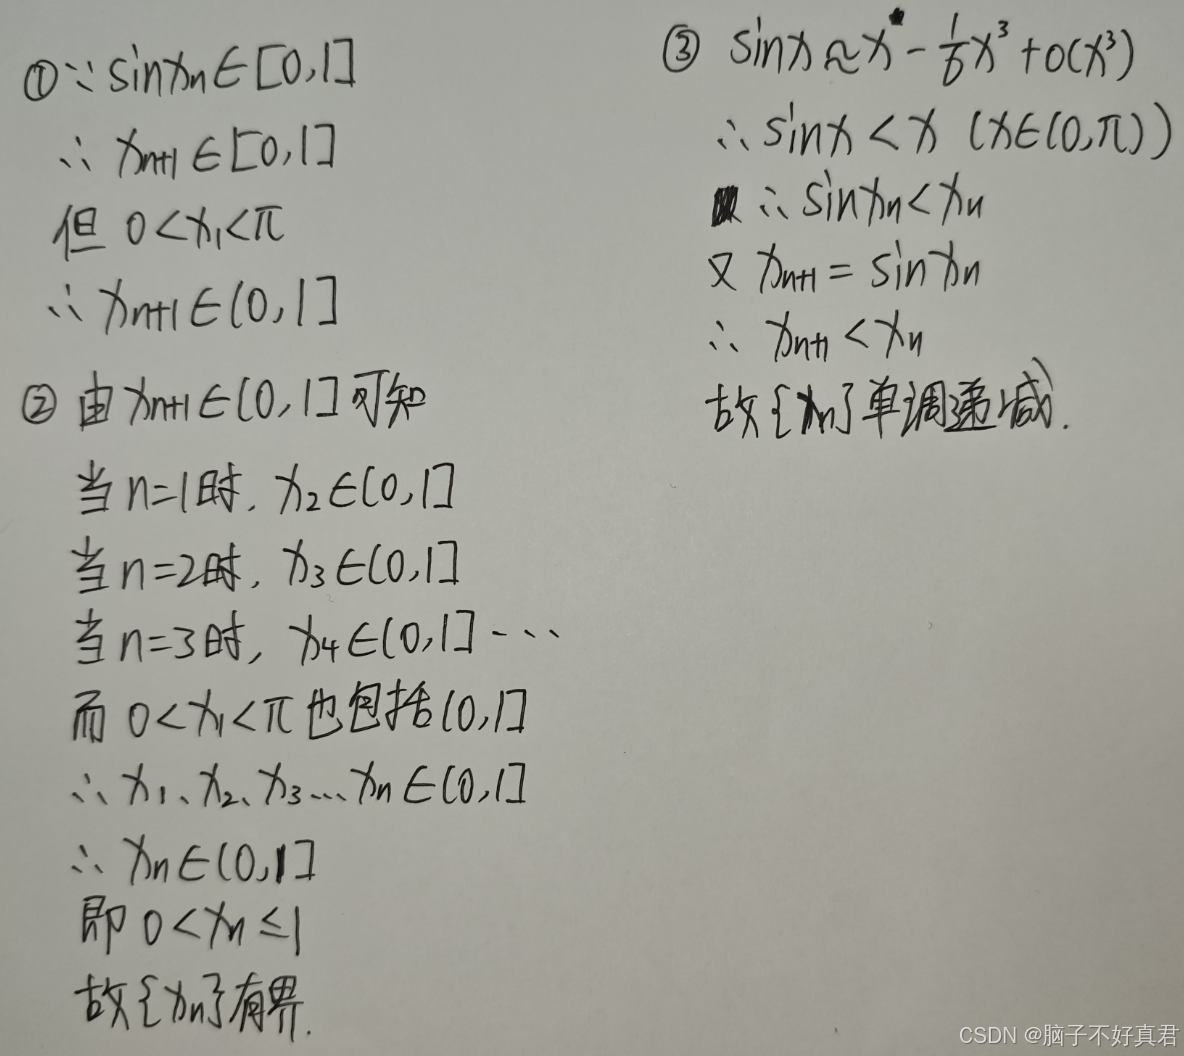 ①∵sinxₙ∈[0,1]
∴xₙ₊₁∈[0,1]
但 0<x₁<π
∴xₙ₊₁∈(0,1]
② 由xₙ₊₁∈(0,1]可知
当n=1时, x₂∈(0,1]
当n=2时, x₃∈(0,1]
当n=3时, x₄∈(0,1]…
而 0<x₁<π也包括(0,1]
∴x₁、x₂、x₃…xₙ∈(0,1]
∴xₙ∈(0,1]
即 0<xₙ≤1
故{xₙ}有界.
③ sinx≈x-1/6x³+o(x³)
∴sinx<x (x∈(0,π))
∴sinxₙ<xₙ
又 xₙ₊₁=sinxₙ
∴xₙ₊₁<xₙ
故{xₙ}单调递减.
CSDN @脑子不好真君